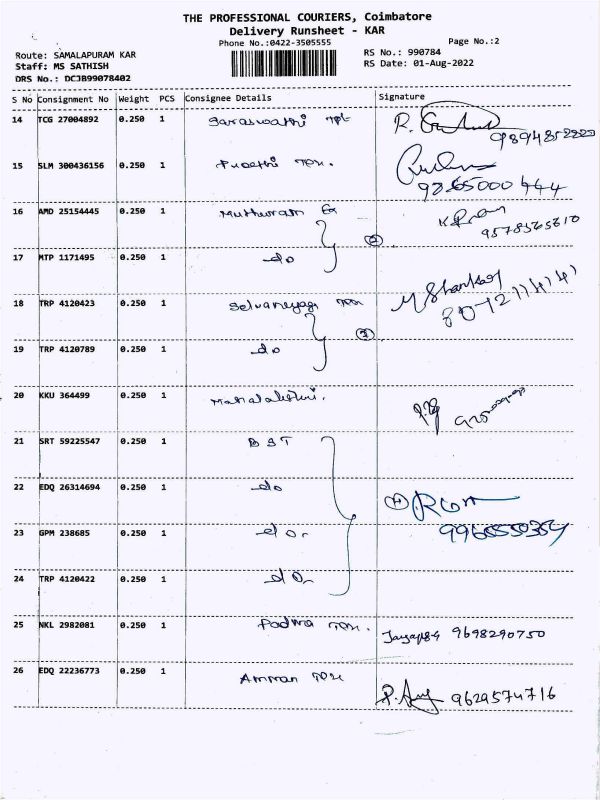 THE PROFESSIONAL COURIERS, Coimbatore
Delivery Runsheet - KAR
Phone No.:0422-3505555
Page No.:2
Route: SAMALAPURAM KAR
RS No.: 990784
Staff: MS SATHISH
RS Date: 01-Aug-2022
DRS No.: DCJB99078402
S No Consignment No Weight PCS Consignee Details Signature
14 TCG 27004892 0.250 1 Saraswathi
15 SLM 300436156 0.250 1
16 AMD 25154445 0.250 1 Muthuram
9578565610
17 MTP 1171495 0.250 1 do
18 TRP 4120423 0.250 1
M Shankar
19 TRP 4120789 0.250 1 do
20 KKU 364499 0.250 1 Mahalakshmi.
21 SRT 59225547 0.250 1 BST
22 EDQ 26314694 0.250 1 do
4
23 GPM 238685 0.250 1 do
24 TRP 4120422 0.250 1 do
25 NKL 2982081 0.250 1 Padma
9698290750
26 EDQ 22236773 0.250 1 Amman
9629574716